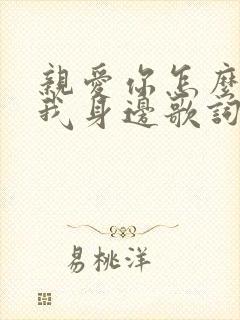 親愛你怎麼
我身邊歌詞
易桃洋